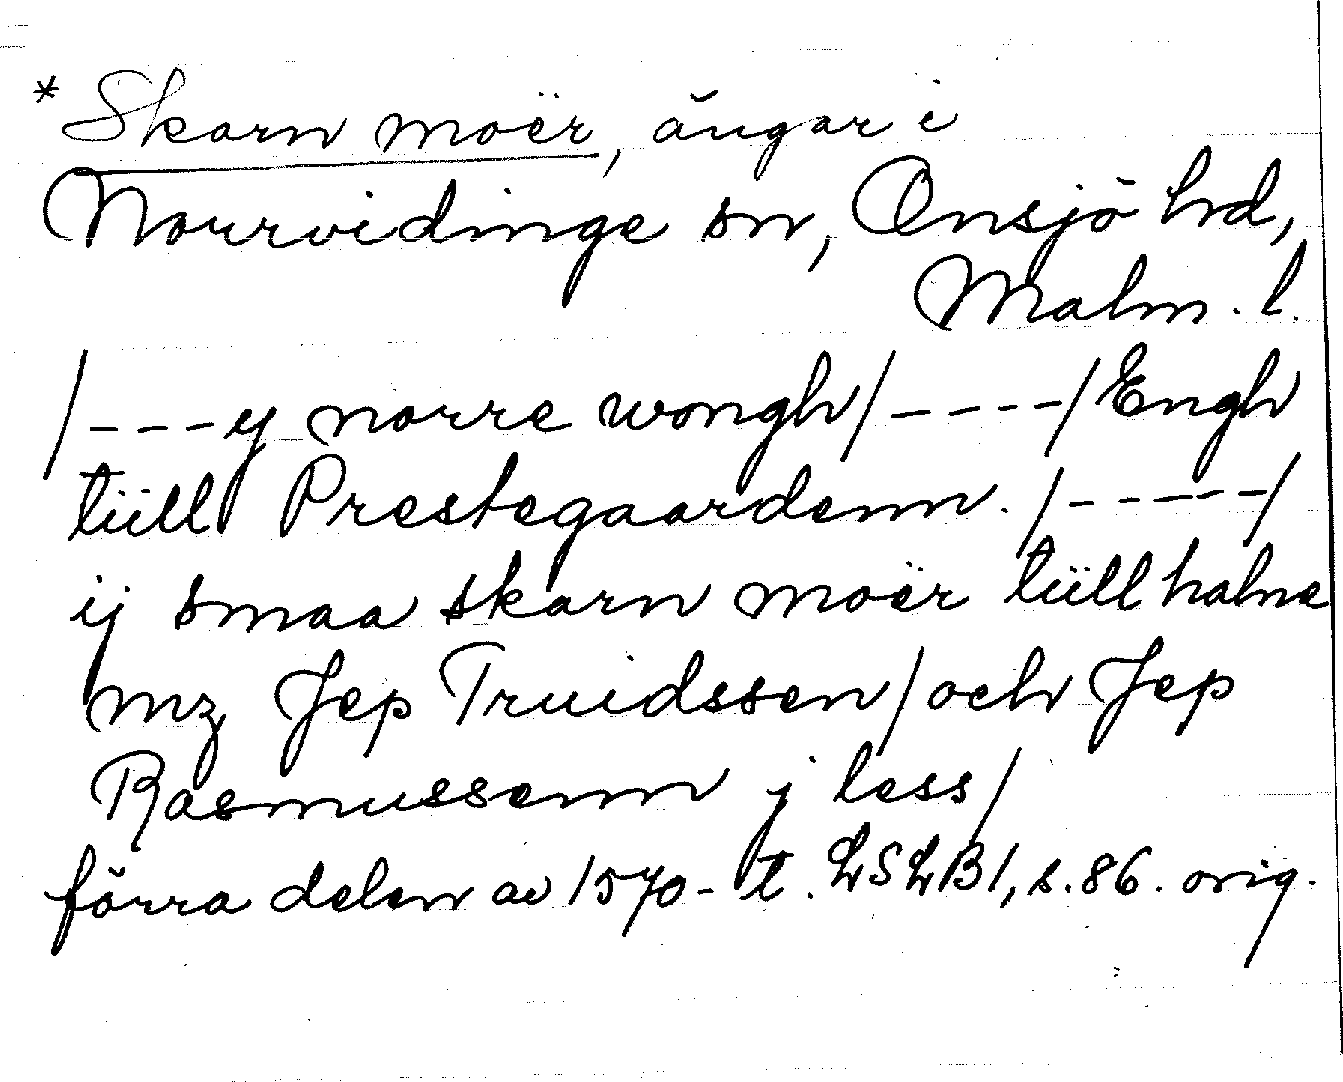 * Skarn moër, ängar i
Norrvidinge sn, Onsjö hd,
Malm. l.
/---y norre wongh/----/Engh
tüll Prestegaardenn./-----/
ij smaa skarn moër tüll halne
mz Jep Truidssen/och Jep
Rasmussenn j less/
förra delen av 1570-t. LSLB1, s.86. orig.